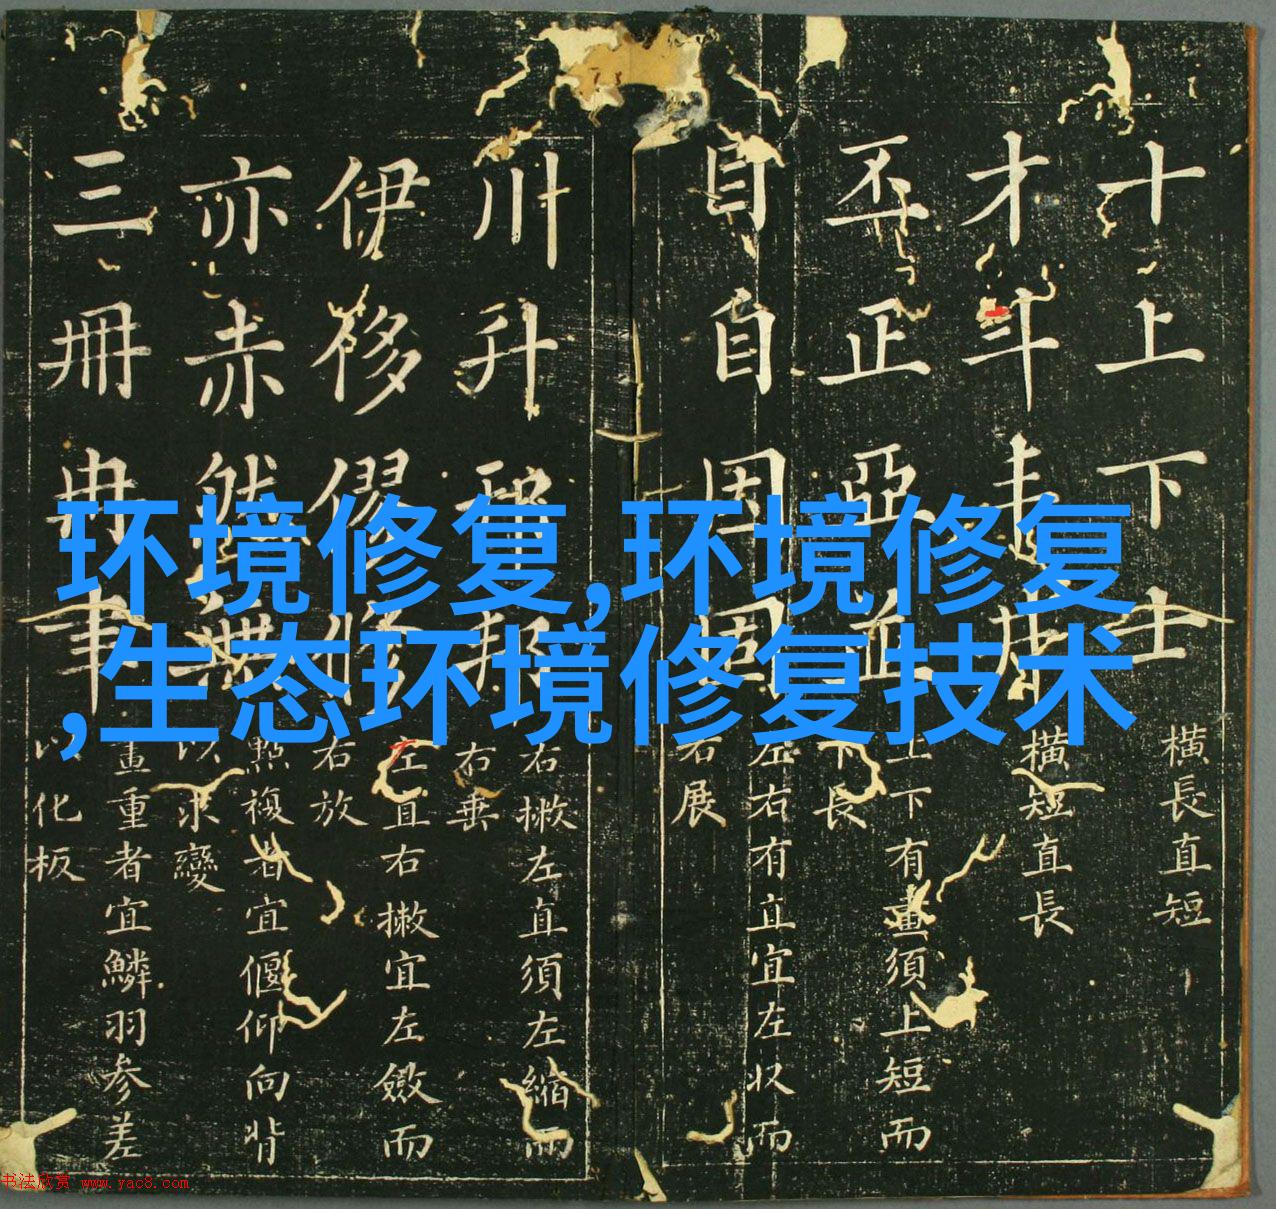 环境修复,环境修复
,生态环境修复技术
十上下士
横長直短
才斗
横短直長
丕正亞並
上下有畫須上短而
下長
目自因固
左右有直宜左收而
右展
川升邦
右撇左直須左縮而
右垂
伊侈修
左直右撇宜左斂而
右放
亦赤然無
點複者宜偃仰向背
以求變
三冊冉聿
畫重者宜鱗羽参差
以化板
书法欣赏 www.yac8.com